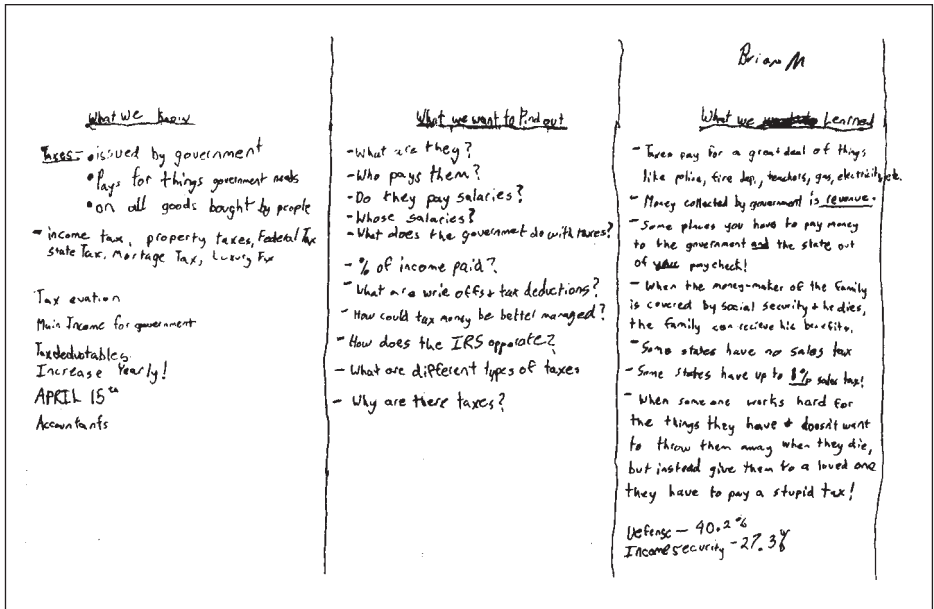 Brian M
What we know
Taxes - • issued by government
• Pays for things government needs
• on all goods bought by people
- income tax, property taxes, Federal Tax
state Tax, Mortage Tax, Luxury Tax
Tax evation
Main Income for government
Taxdeductables
Increase Yearly!
APRIL 15th
Accountants
What we want to Find out
- What are they?
- Who pays them?
- Do they pay salaries?
- Whose salaries?
- What does the government do with taxes?
- % of income paid?
- What are write offs + tax deductions?
- How could tax money be better managed?
- How does the IRS opporate?
- What are different types of taxes
- Why are there taxes?
What we Learned
- Taxes pay for a great deal of things
like police, fire dep., teachers, gas, electricity, etc.
- Money collected by government is revenue.
- Some places you have to pay money
to the government and the state out
of your paycheck!
- When the money-maker of the family
is covered by social security + he dies,
the family can recieve his benefits.
- Some states have no sales tax
- Some states have up to 8% sales tax!
- When someone works hard for
the things they have + doesn't want
to throw them away when they die,
but instead give them to a loved one
they have to pay a stupid tax!
Defense - 40.2%
Income security - 27.3%